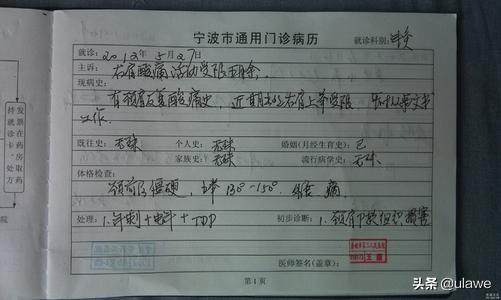 宁波市通用门诊病历
就诊科别: 针灸
就诊: 2012年5月27日
主诉: 右肩酸痛活动受限
现病史:
有颈肩反复酸痛史, 近期出现右肩上举受限
工作.
既往史: 无殊 个人史: 无殊 婚姻(月经生育史): 已
家族史: 无殊 流行病学史: 无殊
体格检查:
上举130°~150° 痛
处理: 1.针刺+电针+TDP 初步诊断: 1.颈肩部软组织损害
医师签名(盖章):
第 1 页
持就诊卡、处方
发票在药房取药
头条 @ulawe